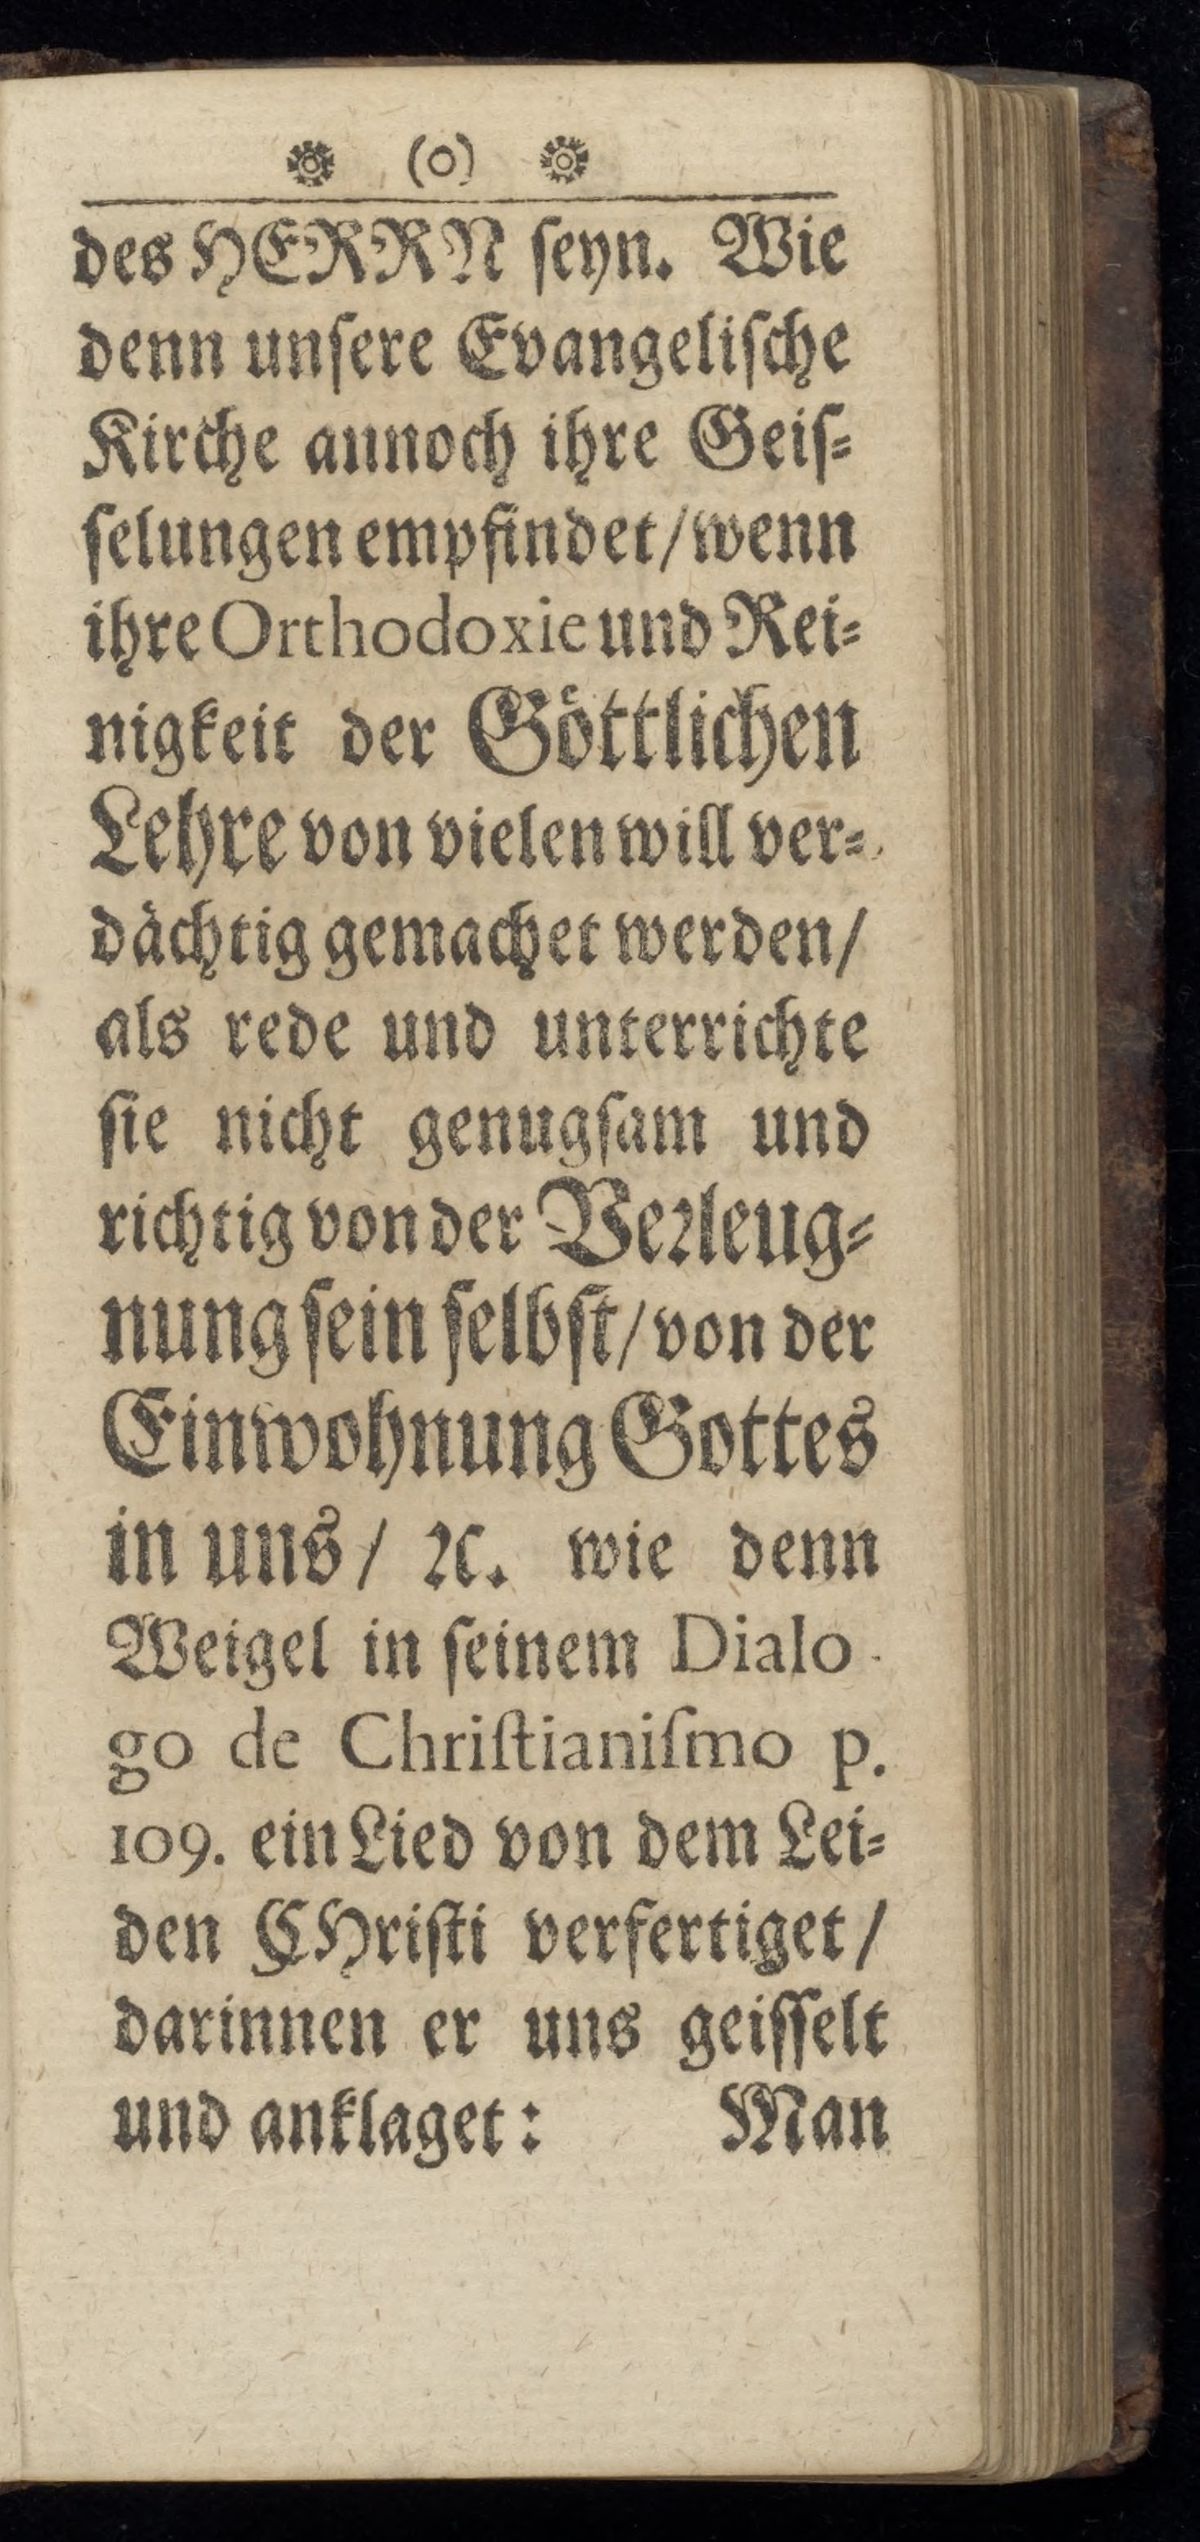 (o)
des HERRN ſeyn. Wie
denn unſere Evangeliſche
Kirche annoch ihre Geiſ=
ſelungen empfindet/wenn
ihre Orthodoxie und Rei=
nigkeit der Göttlichen
Lehre von vielen will ver=
dächtig gemachet werden/
als rede und unterrichte
ſie nicht genugſam und
richtig von der Verleug=
nung ſein ſelbſt/von der
Einwohnung Gottes
in uns/ ꝛc. wie denn
Weigel in ſeinem Dialo-
go de Chriſtianiſmo p.
109. ein Lied von dem Lei=
den CHriſti verfertiget/
darinnen er uns geiſſelt
und anklaget: Man